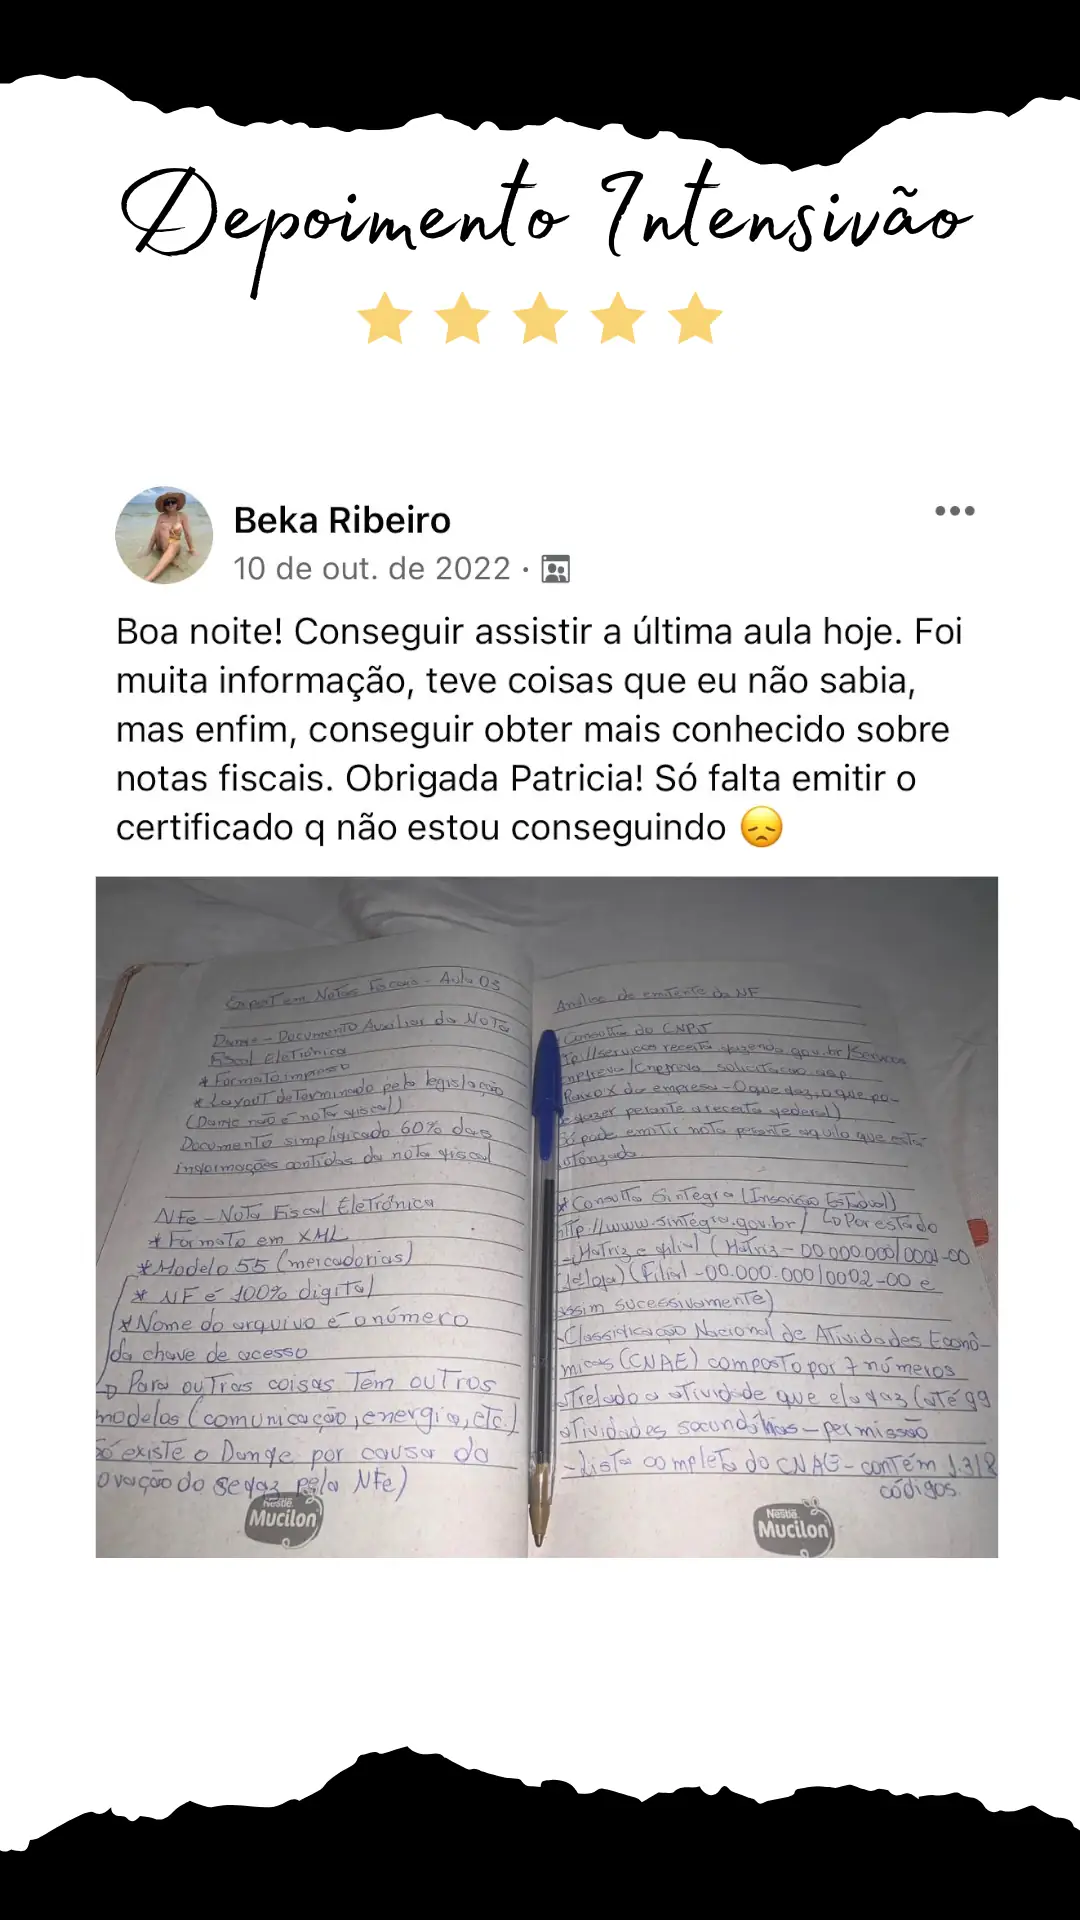 Depoimento Intensivão
Beka Ribeiro
10 de out. de 2022 ·
Boa noite! Conseguir assistir a última aula hoje. Foi
muita informação, teve coisas que eu não sabia,
mas enfim, conseguir obter mais conhecido sobre
notas fiscais. Obrigada Patricia! Só falta emitir o
certificado q não estou conseguindo
Expert em Notas Fiscais - Aula 03
Danfe - Documento Auxiliar da Nota
Fiscal Eletrônica
* Formato impresso
* Layout determinado pela legislação
(Danfe não é nota fiscal)
Documento simplificado 60% das
informações contidas da nota fiscal
NFe - Nota Fiscal Eletrônica
* Formato em XML
* Modelo 55 (mercadorias)
* NF é 100% digital
* Nome do arquivo é o número
da chave de acesso
Para outras coisas Tem outros
modelos (comunicação, energia, etc.)
Só existe o Danfe por causa da
ovação do sefaz pela Nfe)
Nestlé
Mucilon
Análise de emitente da NF
Consulta do CNPJ
http://servicos.receita.fazenda.gov.br/Servicos
cnpjreva/Cnpjreva_solicitacao.asp
(Raio X da empresa - O que faz, o que po-
de fazer perante a receita federal)
Só pode emitir nota perante aquilo que está
autorizada
* Consulta Sintegra (Inscrição Estadual)
http://www.sintegra.gov.br/ Por estado
- Matriz e filial (Matriz - 00.000.000/0001-00
(1ª loja) (Filial - 00.000.000/0002-00 e
assim sucessivamente)
- Classificação Nacional de Atividades Econô-
micas (CNAE) composto por 7 números
atrelado a atividade que ela faz (até 99
atividades secundárias - permissão
- Lista completa do CNAE - contém 1.318
códigos.
Nestlé
Mucilon